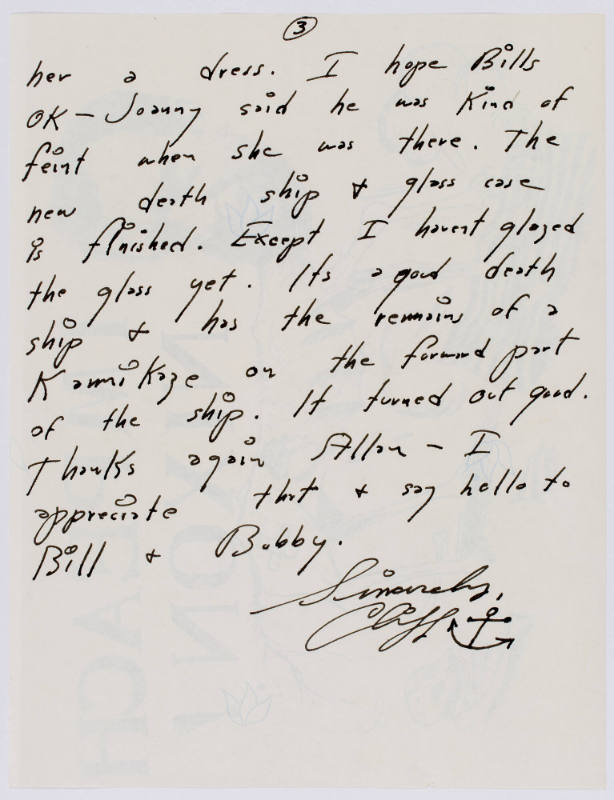 3
her a dress. I hope Bills
OK - Joanny said he was Kind of
feint when she was there. The
new death ship & glass case
is finished. Except I havent glazed
the glass yet. Its a good death
ship & has the remains of a
KamiKaze on the forward part
of the ship. It turned out good.
Thanks again Allan - I
appreciate that & say hello to
Bill & Bobby.
Sincerely,
Cliff